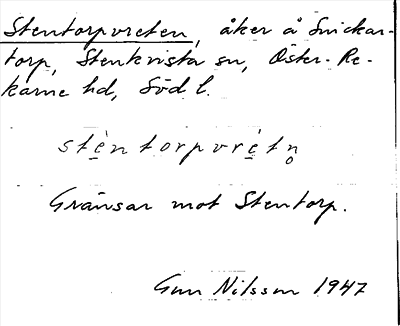 Stentorpvreten, åker å Snickar-
torp, Stenkvista sn, Öster-Re-
karne hd, Söd l.
stèntorpvrétn̥
Gränsar mot Stentorp.
Gun Nilsson 1947